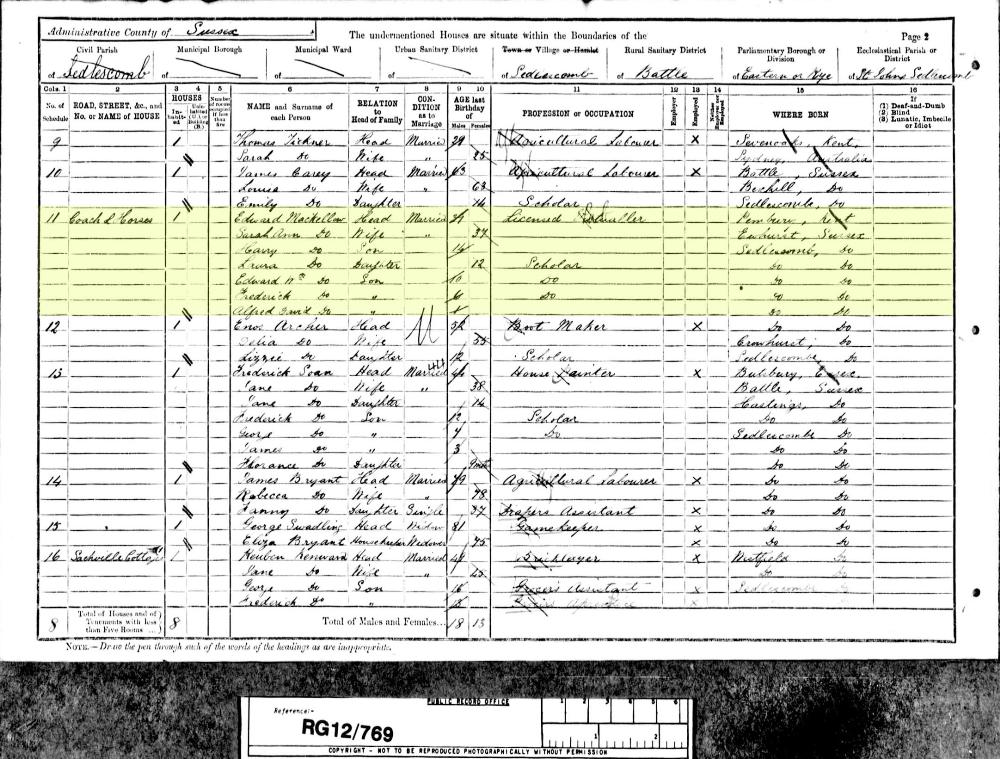 Administrative County of Sussex
The undermentioned Houses are situate within the Boundaries of the
Page 2
Civil Parish
of Sedlescomb
Municipal Borough
of
Municipal Ward
of
Urban Sanitary District
of
Town or Village or Hamlet
of Sedlescomb
Rural Sanitary District
of Battle
Parliamentary Borough or Division
of Eastern or Rye
Ecclesiastical Parish or District
of St Johns Sedlescomb
Cols. 1 2 3 4 5 6 7 8 9 10 11 12 13 14 15 16
No. of Schedule
ROAD, STREET, &c., and No. or NAME of HOUSE
HOUSES
Inhabited
Uninhabited (U.) or Building (B.)
Number of rooms occupied if less than five
NAME and Surname of each Person
RELATION to Head of Family
CONDITION as to Marriage
AGE last Birthday of
Males Females
PROFESSION or OCCUPATION
Employer
Employed
Neither Employer nor Employed
WHERE BORN
If
(1) Deaf-and-Dumb
(2) Blind
(3) Lunatic, Imbecile or Idiot
9 1 Thomas Head Married 29 Agricultural Labourer X Sevenoaks, Kent
Sarah Do Wife " 25 Sydney, Australia
10 1 James Carey Head Married 63 Agricultural Labourer X Battle, Sussex
Louisa Do Wife " 63 Bexhill, Do
Emily Do Daughter 14 Scholar Sedlescombe, Do
11 Coach & Horses 1 Edward Mackellow Head Married Licensed Pembury, Kent
Sarah Ann Do Wife " 37 Ewhurst, Sussex
Harry Do Son 14 Sedlescomb, Do
Laura Do Daughter 12 Scholar Do Do
Edward Wm Do Son 10 Do Do Do
Frederick Do " 6 Do Do Do
Alfred David Do " Do Do
12 1 Enos Archer Head Boot Maker X Do Do
Delia Do Wife 55 Crowhurst, Do
Lizzie Do Daughter 12 Scholar Sedlescombe, Do
13 1 Frederick Soan Head Married 40 House Painter X Essex
Jane Do Wife " 38 Battle, Sussex
Jane Do Daughter 14 Hastings, Do
Frederick Do Son 12 Scholar Do Do
George Do " 7 Do Sedlescombe Do
James Do " 3 Do Do
Florance Do Daughter Do Do
14 1 James Bryant Head Married 79 Agricultural Labourer X Do Do
Rebecca Do Wife " 78 Do Do
Fanny Do Daughter Single 37 Drapers Assistant X Do Do
15 " 1 George Swadling Head Widow 81 Gamekeeper X Do Do
Eliza Bryant Housekeeper Widower 75 X Do Do
16 Sackville Cottage 1 Reuben Kenward Head Married Bricklayer X
Jane Do Wife " 45 Do
George Do Son Grocers Assistant X Sedlescombe
Frederick Do "
8 Total of Houses and of Tenements with less than Five Rooms ... 8 Total of Males and Females... 18 13
NOTE.—Draw the pen through such of the words of the headings as are inappropriate.
PUBLIC RECORD OFFICE
Reference:-
RG12/769
1 2 3 4 5 6
1 2
COPYRIGHT - NOT TO BE REPRODUCED PHOTOGRAPHICALLY WITHOUT PERMISSION